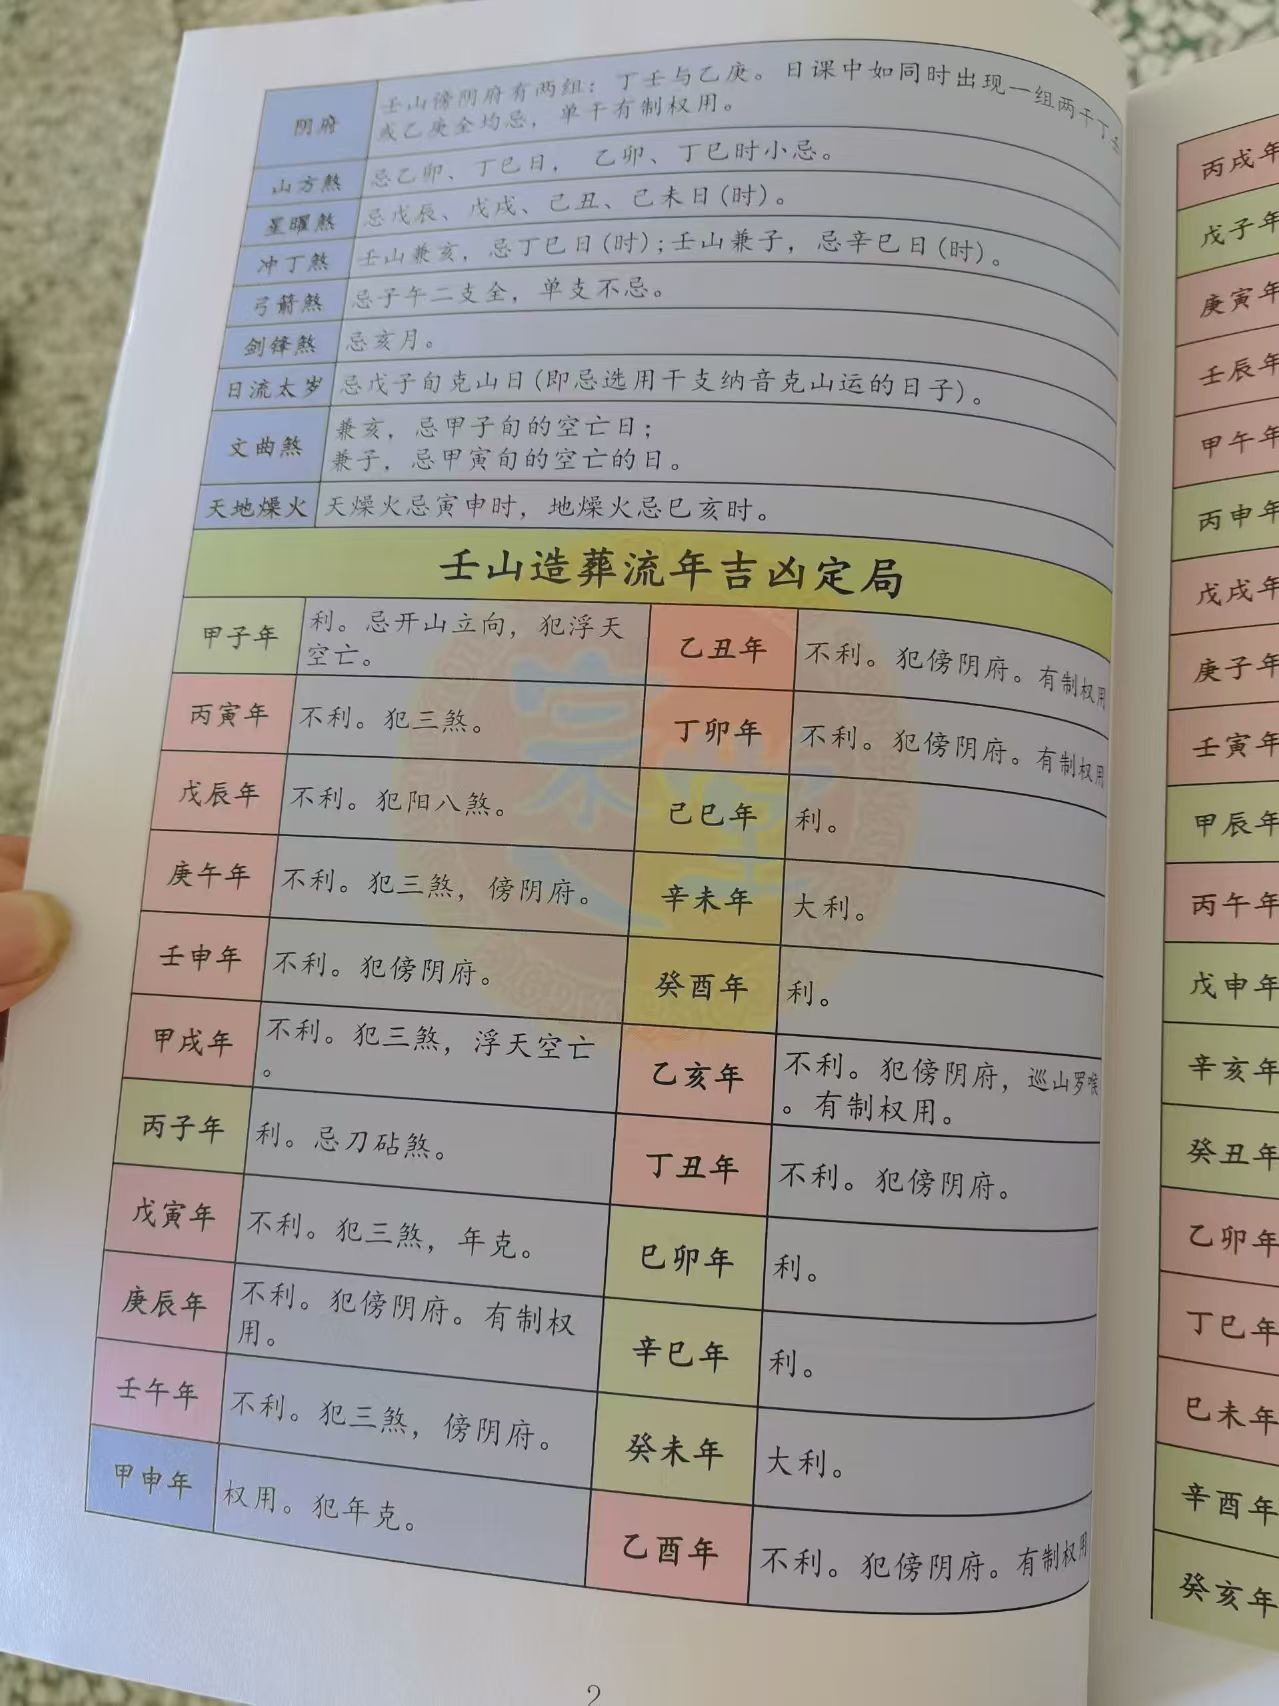 阴府
壬山傍阴府有两组：丁壬与乙庚。日课中如同时出现一组两干丁壬
或乙庚全均忌，单干有制权用。
山方煞 忌乙卯、丁巳日， 乙卯、丁巳时小忌。
星曜煞 忌戊辰、戊戌、己丑、己未日(时)。
冲丁煞 壬山兼亥，忌丁巳日(时)；壬山兼子，忌辛巳日(时)。
弓箭煞 忌子午二支全，单支不忌。
剑锋煞 忌亥月。
日流太岁 忌戊子旬克山日(即忌选用干支纳音克山运的日子)。
文曲煞
兼亥，忌甲子旬的空亡日；
兼子，忌甲寅旬的空亡的日。
天地燥火 天燥火忌寅申时，地燥火忌巳亥时。
壬山造葬流年吉凶定局
甲子年
利。忌开山立向，犯浮天
空亡。
乙丑年 不利。犯傍阴府。有制权用
丙寅年 不利。犯三煞。
丁卯年 不利。犯傍阴府。有制权用
戊辰年 不利。犯阳八煞。
己巳年 利。
庚午年 不利。犯三煞，傍阴府。
辛未年 大利。
壬申年 不利。犯傍阴府。
癸酉年 利。
甲戌年
不利。犯三煞，浮天空亡
。
乙亥年
不利。犯傍阴府，巡山罗喉
。有制权用。
丙子年 利。忌刀砧煞。
丁丑年 不利。犯傍阴府。
戊寅年 不利。犯三煞，年克。
巳卯年 利。
庚辰年
不利。犯傍阴府。有制权
用。
辛巳年 利。
壬午年 不利。犯三煞，傍阴府。
癸未年 大利。
甲申年 权用。犯年克。
乙酉年 不利。犯傍阴府。有制权用
2
丙戌年
戊子年
庚寅年
壬辰年
甲午年
丙申年
戊戌年
庚子年
壬寅年
甲辰年
丙午年
戊申年
辛亥年
癸丑年
乙卯年
丁巳年
巳未年
辛酉年
癸亥年